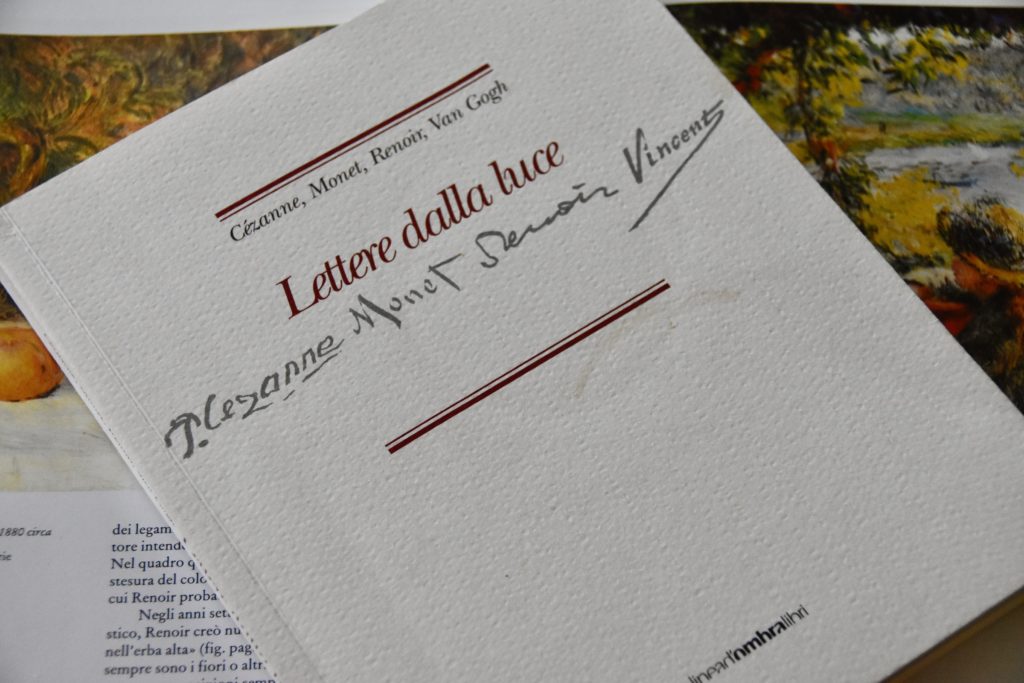 Cézanne, Monet, Renoir, Van Gogh
Lettere dalla luce
P. Cezanne Monet Renoir Vincent
linead'ombralibri
1880 circa
dei legam
tore intend
Nel quadro q
stesura del colo
cui Renoir proba
Negli anni set
stico, Renoir creò nu
nell'erba alta» (fig. pag
sempre sono i fiori o altr